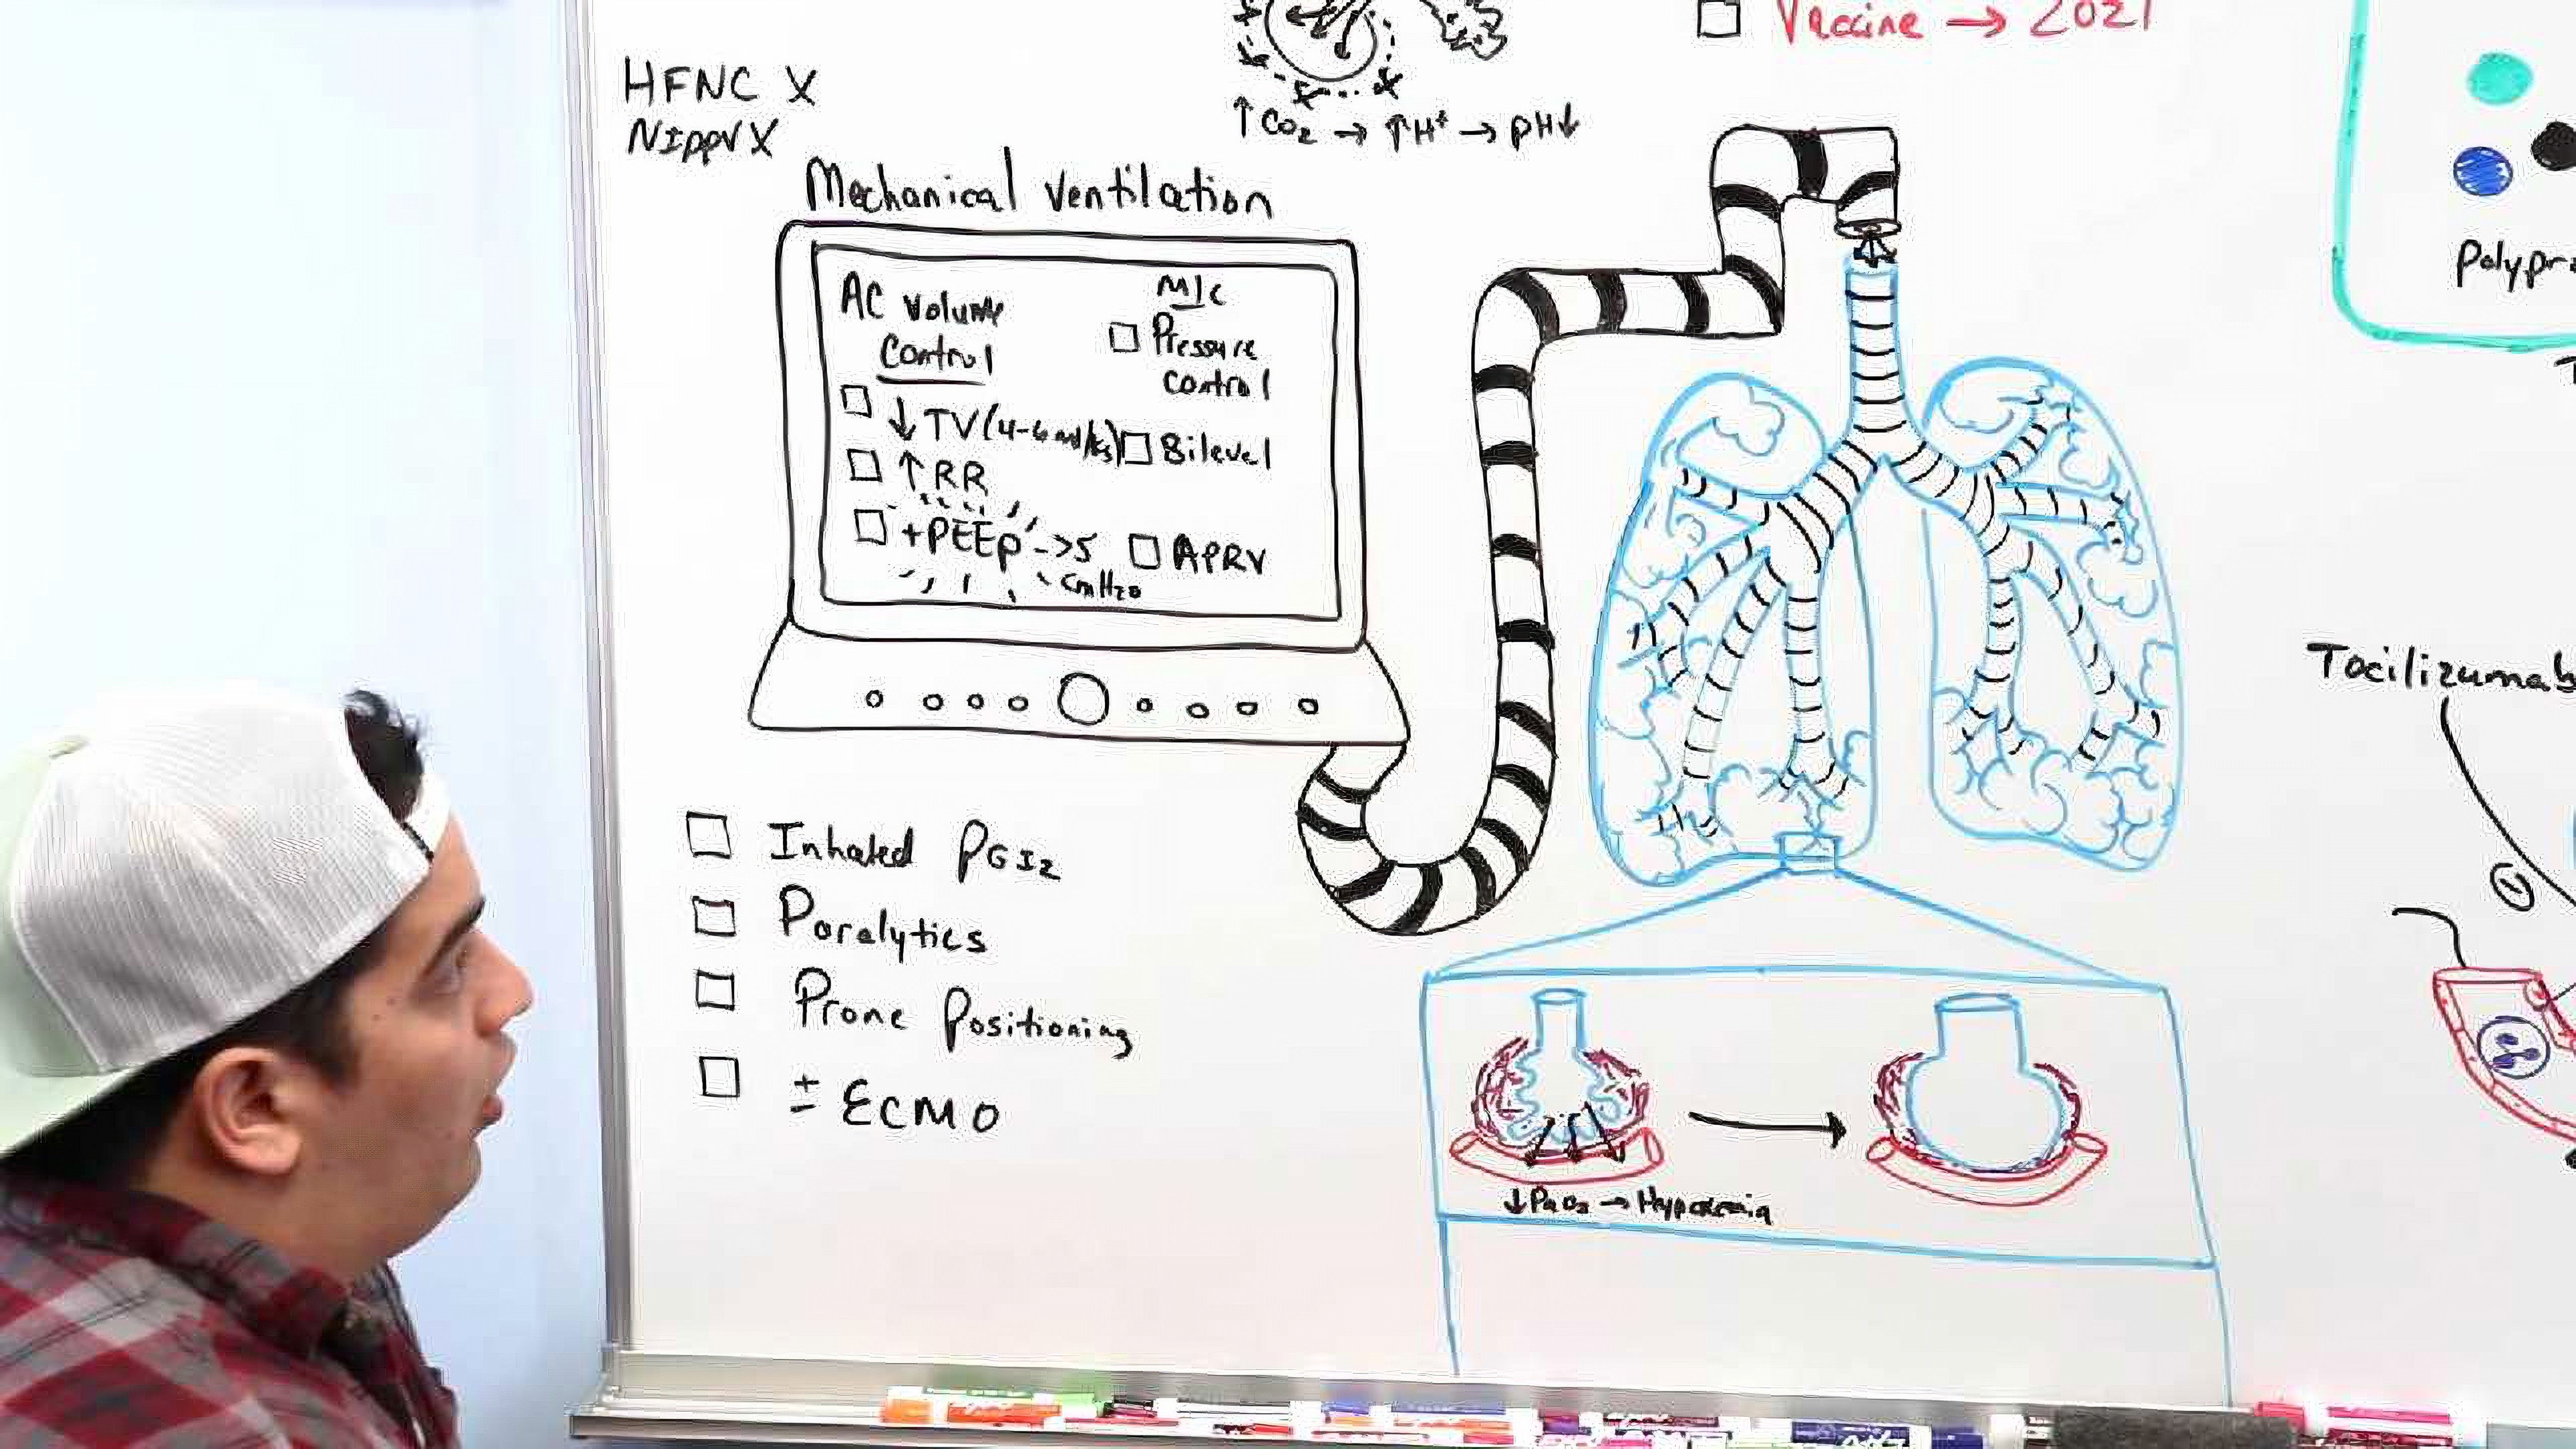 Vaccine → 2021
HFNC X
NIPPV X
↑CO2 → ↑H+ → pH↓
Mechanical Ventilation
AC Volume
Control
↓TV(4-6ml/kg)
↑RR
+PEEP->5
cmH20
M/c
Pressure
control
Bilevel
APRV
Inhaled PGI2
Paralytics
Prone Positioning
± ECMO
↓PaO2 → Hypoxemia
Polypr
Tocilizumab